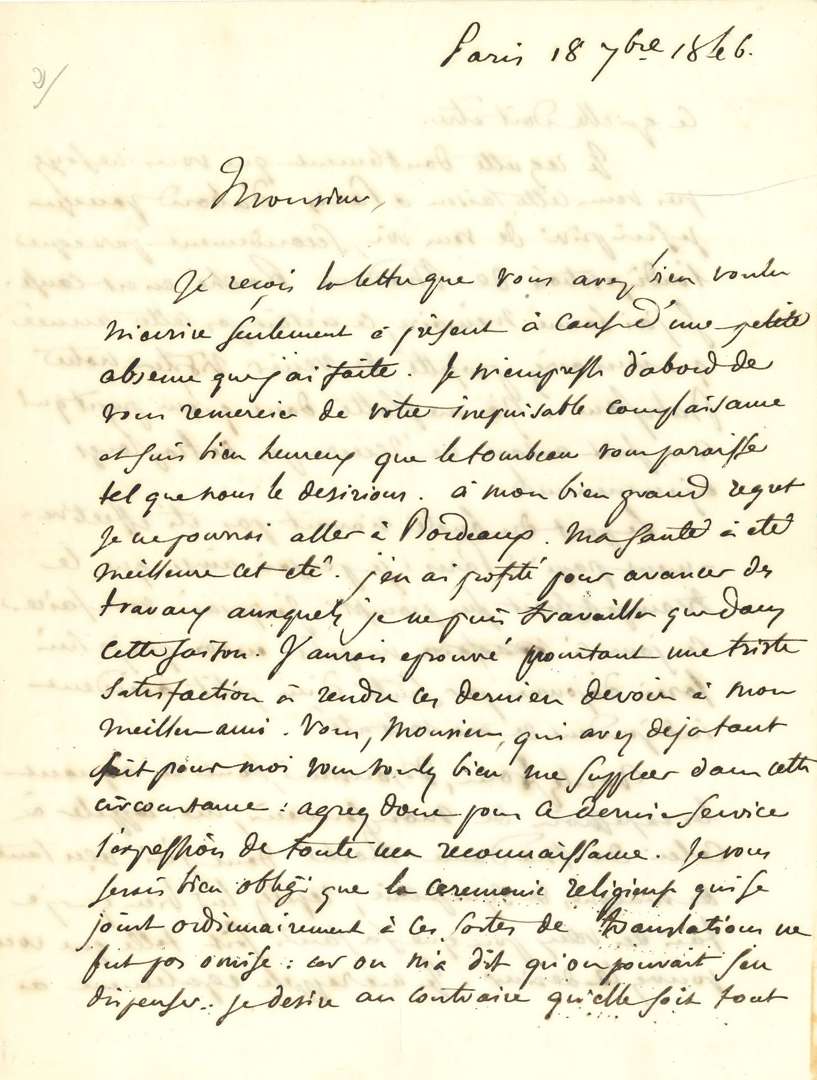 Paris 18 7bre 1846.
2/
Monsieur,
Je reçois la lettre que vous avez bien voulu
m'ecrire seulement à présent à cause d'une petite
absence que j'ai faite. Je m'empresse d'abord de
vous remercier de votre inepuisable complaisance
et suis bien heureux que le tombeau vous paraisse
tel que nous le desirions. à mon bien grand regret
je ne pourrai aller à Bordeaux. Ma santé a été
meilleure cet eté. j'en ai profité pour avancer des
travaux auxquels je ne puis travailler que dans
cette saison. J'aurais eprouvé pourtant une triste
satisfaction à rendre ces derniers devoirs à mon
meilleur ami. Vous, Monsieur, qui avez deja tant
fait pour moi vous voulez bien me suppléer dans cette
circonstance : agreez donc pour ce dernier service
l'expression de toute ma reconnaissance. Je vous
serais bien obligé que la ceremonie religieuse qui se
joint ordinnairement à ces sortes de translations ne
fut pas omise : car on m'a dit qu'on pouvait s'en
dispenser. je desire au contraire qu'elle soit tout